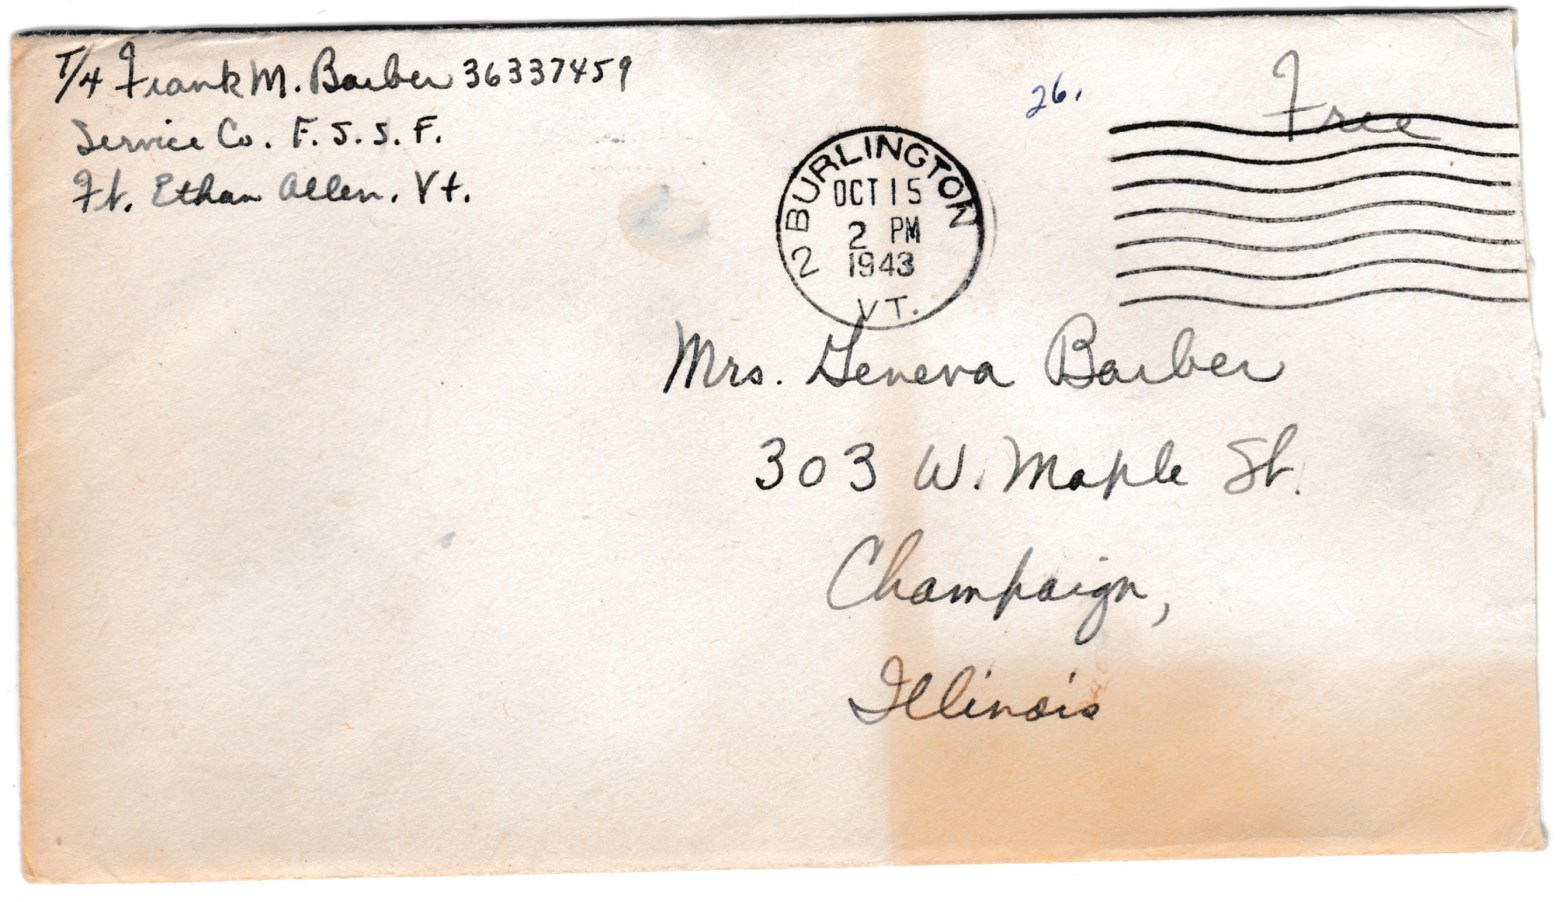 T/4 Frank M. Barber 36337459
Service Co. F.S.S.F.
Ft. Ethan Allen, Vt.
26.
Free
2 BURLINGTON
OCT 15
2 PM
1943
VT.
Mrs. Geneva Barber
303 W. Maple St.
Champaign,
Illinois